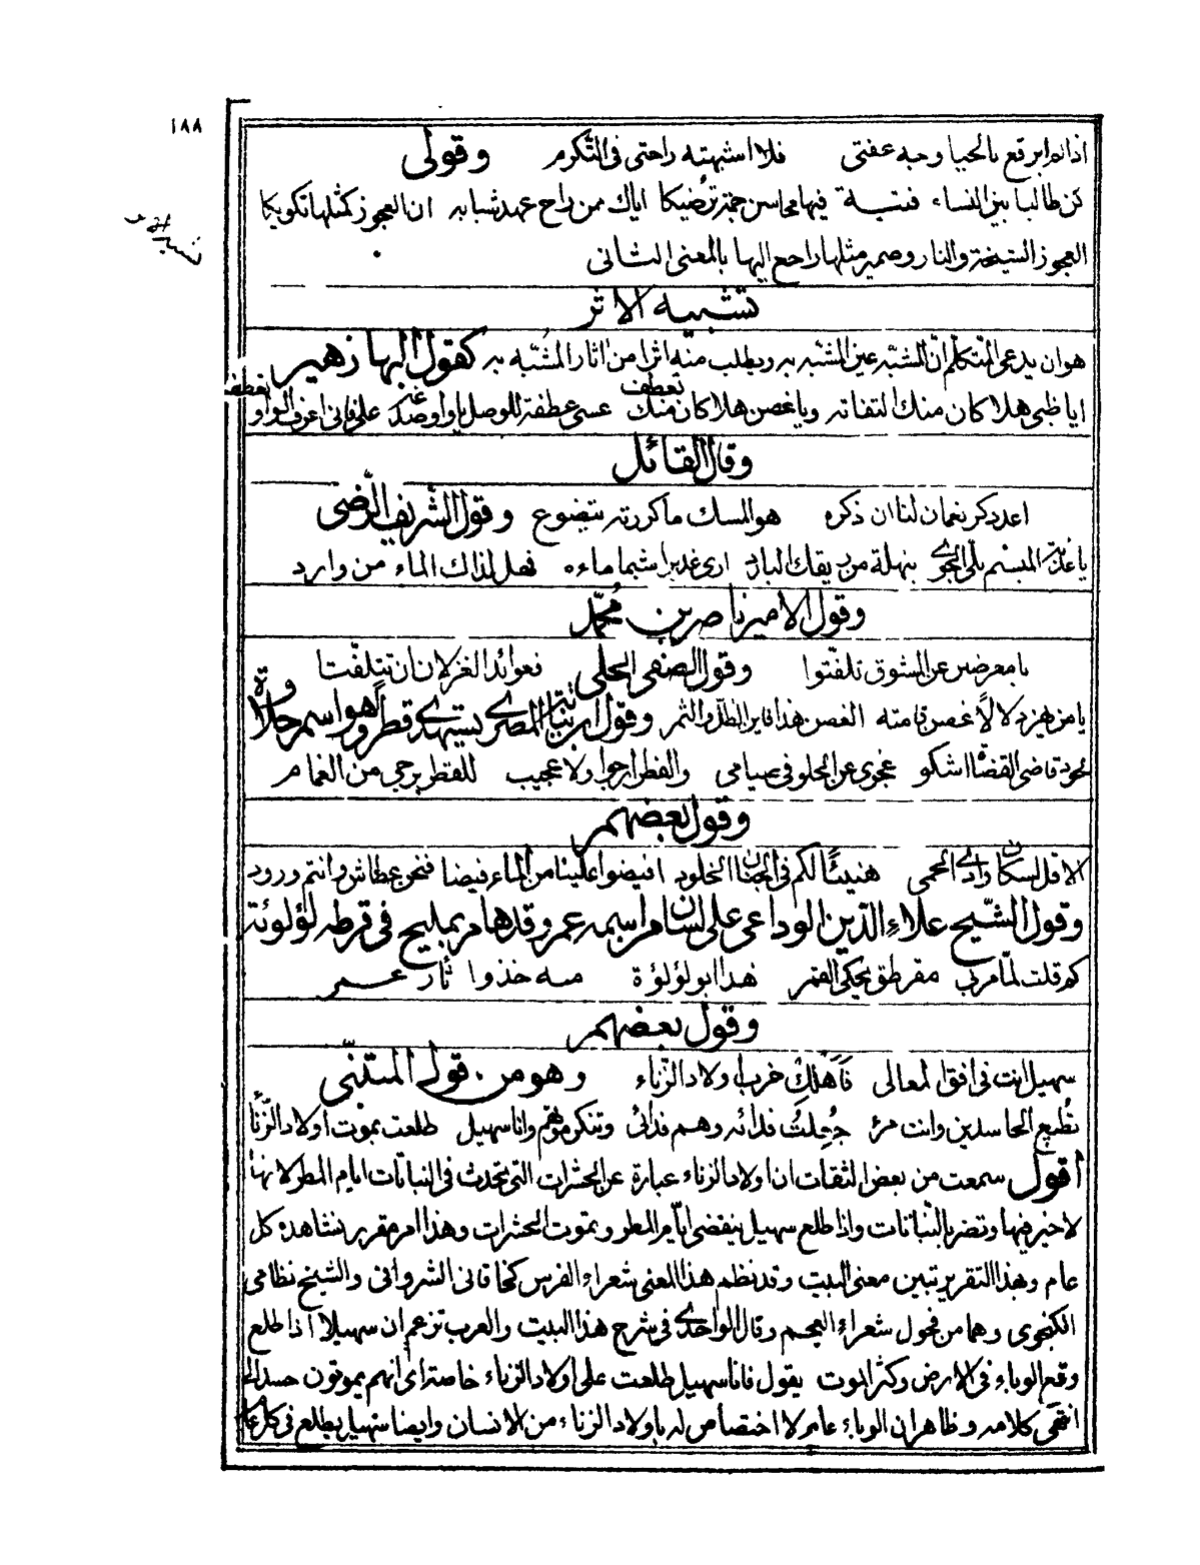 ١٨٨
اذا لم ابرقع بالحيا وجه عفتي فلا اشبهته راحتي في التكرم وقولي
كن طالبا بين النساء فتية فيها محاسن جمة ترضيكا اياك ممن راح عهد شبابه ان العجوز كمثلها تكويكا
العجوز الشيخة والنار وضمير مثلها راجع اليها بالمعنى الثاني
تشبيه الاثر
تشبيه الاثر
هو ان يدعى المتكلم ان المشبه عين المشبه به ويطلب منه اثرا من اثار المشبه به كقول البها زهير
ايا ظبي هلا كان منك التفاتة ويا غصن هلا كان منك تعطف عسى عطفة للوصل يا واو صدغه علي فاني اعرف الواو تعطف
وقال القائل
اعد ذكر نعمان لنا ان ذكره هو المسك ما كررته يتضوع وقول الشريف الرضى
المبسم بلي الجوى بنهلة من ريقك البارد ارى غديرا شبما ماءه فهل لذاك الماء من وارد
وقول الامير ناصر بن محمد
يا معرضين عن المشوق تلفتوا فعوائد الغزلان ان تتلفتا وقول الصفى الحلى
يا من هز دلالا غصن قامته الغصن هذا فاين الظل والثمر وقول ابن نباتة المصرى يستهدى قطرا وهو اسم حلاوة
لجود قاضى القضاة اشكو عجزى عن الحلو في صيامى والقطر ارجو ولا عجيب للقطر يرجى من الغمام
وقول بعضهم
الا قل لسكان وادى الحمى هنيئا لكم في الجنان الخلود افيضوا علينا من الماء فيضا فنحن عطاش وانتم ورود
وقول الشيخ علاء الدين الوداعى على لسان من اسمه عمر وقد هام بمليح في قرطه لؤلوئة
كم قلت لما مر بي مقرطق يحكي القمر هذا ابو لؤلؤة منه خذوا ثار عمر
وقول بعضهم
سهيل انت في افق المعالى فاهلك ضرب اولاد الزناء وهو من قول المتنبى
تطيع الحاسدين وانت مرء جعلت فدائه وهم فدائى وتنكر موتهم وانا سهيل طلعت بموت اولاد الزناء
اقول سمعت من بعض الثقات ان اولاد الزناء عبارة عن الحشرات التى تحدث في النباتات ايام المطر لانها
لا خير فيها وتضر بالنباتات واذا طلع سهيل ينقضى ايام المطر وبموت الحشرات وهذا امر مقرر نشاهده كل
عام وهذا التقرير تبين معنى البيت وقد نظم هذا المعنى شعراء الفرس كخاقانى الشروانى والشيخ نظامى
الكنجوى وهما من فحول شعراء العجم وقال الواحدى في شرح هذا البيت والعرب تزعم ان سهيلا اذا طلع
وقع الوباء في الارض وكثر الموت يقول فانا سهيل طلعت على اولاد الزناء خاصة اى انهم يموتون حسدا لى
انتهى كلامه وظاهر ان الوباء عام لا اختصاص له باولاد الزناء من الانسان وايضا سهيل يطلع في كل عام